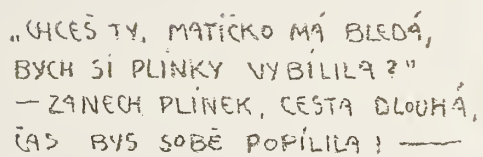 „CHCEŠ TY, MATIČKO MÁ BLEDÁ,
BYCH SI PLÍNKY VYBÍLILA?”
— ZANECH PLÍNEK, CESTA DLOUHÁ,
ČAS BYS SOBĚ POPÍLILA! —